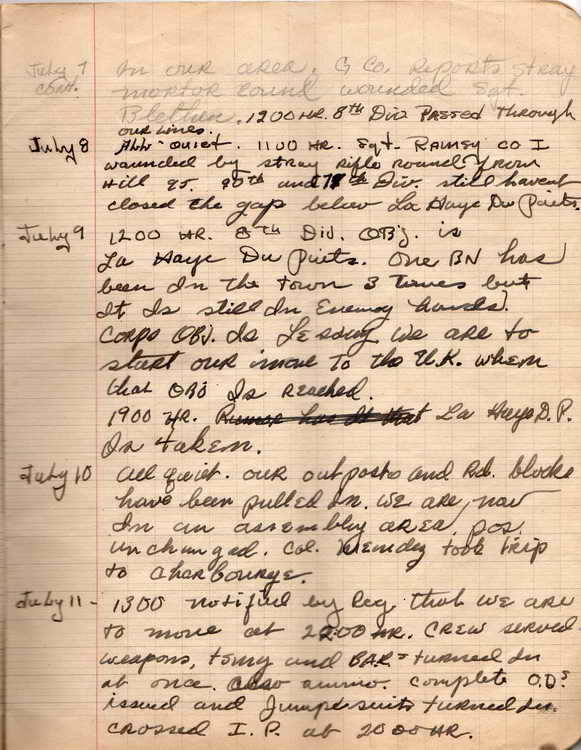 July 7 In our area. G Co. Reports stray
cont. mortor round wounded Sgt.
Blethen. 1200 HR. 8th Div Passed through
our lines.
July 8 All quiet. 1100 HR. Sgt. Ramsey co I
wounded by stray rifle round from
Hill 95. 90th and 79th Div. still havent
closed the gap below La Haye Du Puits.
July 9 1200 HR. 8th Div. OBJ. is
La Haye Du Puits. One BN has
been In the town 3 times but
It Is still In Enemy hands.
Corps OBJ. Is Lessay. We are to
start our move To the U.K. when
that OBJ Is reached.
1900 HR. Rumor has It that La Haye D.P.
Is taken.
July 10 All quiet. our outposts and Rd. blocks
have been pulled In. we are now
In an assembly area. pos.
unchanged. Col. took trip
to Charbourge.
July 11 - 1300 notified by Reg that we are
to move at 2200 HR. crew served
weapons, tsmg and BAR = turned In
at once. also ammo. complete O.D.s
issued and Jump suits turned In.
crossed I.P. at 2000 HR.